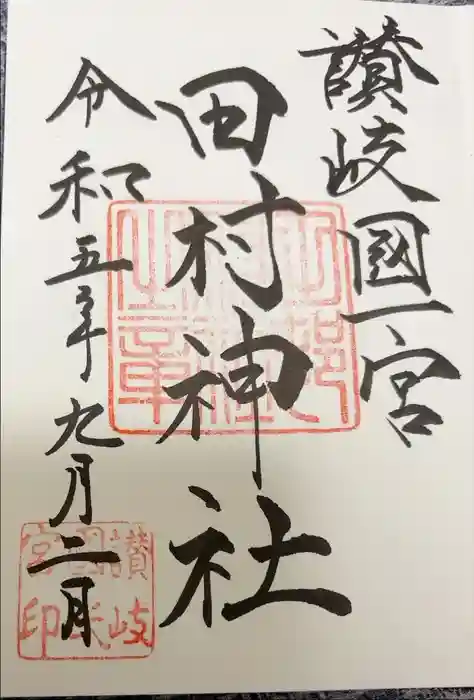 讃岐國一宮
田村神社
令和五年九月二日
之章
讃岐
宮印